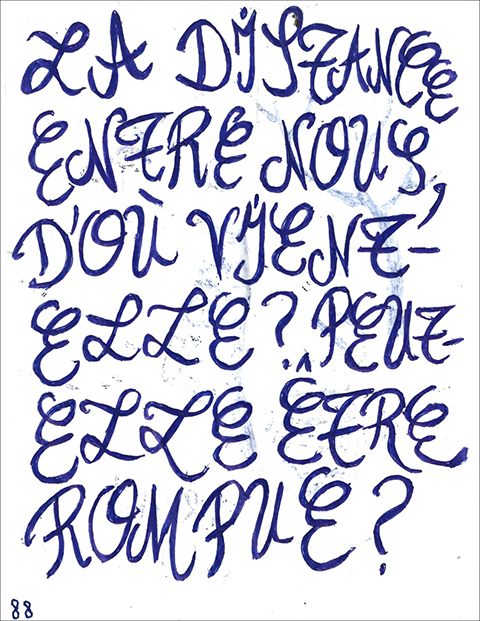 LA DISTANCE
ENTRE NOUS,
D'OÙ VIENT-
ELLE ? PEUT-
ELLE ÊTRE
ROMPUE ?
88